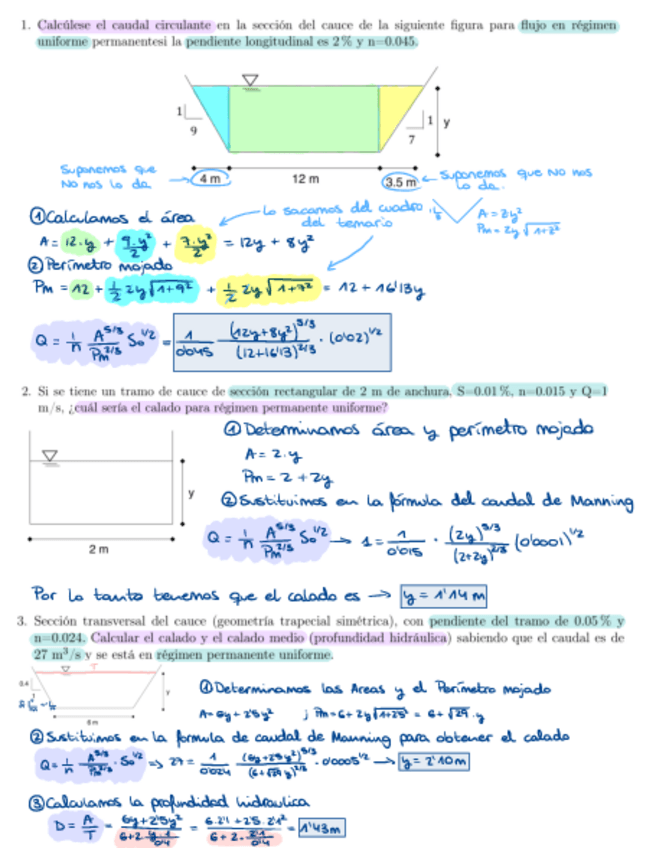 1. Calcúlese el caudal circulante en la sección del cauce de la siguiente figura para flujo en régimen
uniforme permanentesi la pendiente longitudinal es 2 % y n=0.045.
1
9
1
7
y
Suponemos que
No nos lo da
4 m
12 m
3.5 m
Suponemos que No nos
lo da.
① Calculamos el área
Lo sacamos del cuadro
del temario
A = zy²
Pm = 2y √1+z²
A = 12·y + 9·y²/2 + 7·y²/2 = 12y + 8y²
② Perímetro mojado
Pm = 12 + 1/2 2y√1+9² + 1/2 2y√1+7² = 12 + 16'13y
Q = 1/n A^5/3 / Pm^2/3 So^1/2 = 1/0'045 (12y+8y²)^5/3 / (12+16'13)^2/3 · (0'02)^1/2
2. Si se tiene un tramo de cauce de sección rectangular de 2 m de anchura, S=0.01 %, n=0.015 y Q=1
m/s, ¿cuál sería el calado para régimen permanente uniforme?
① Determinamos área y perímetro mojado
A = 2·y
Pm = 2 + 2y
y
2 m
② Sustituimos en la fórmula del caudal de Manning
Q = 1/n A^5/3 / Pm^2/3 So^1/2 → 1 = 1/0'015 · (2y)^5/3 / (2+2y)^2/3 (0'0001)^1/2
Por lo tanto tenemos que el calado es → y = 1'14 m
3. Sección transversal del cauce (geometría trapecial simétrica), con pendiente del tramo de 0.05 % y
n=0.024. Calcular el calado y el calado medio (profundidad hidráulica) sabiendo que el caudal es de
27 m³/s y se está en régimen permanente uniforme.
T
0.4
y
6 m
① Determinamos las Areas y el Perímetro mojado
A = 6y + 2'5y² ; Pm = 6 + 2y√1+2'5² = 6 + √29 · y
② Sustituimos en la formula de caudal de Manning para obtener el calado
Q = 1/n A^5/3 / Pm^2/3 · So^1/2 ⇒ 27 = 1/0'024 (6y+2'5y²)^5/3 / (6+√29 y)^2/3 · 0'0005^1/2 → y = 2'10 m
③ Calculamos la profundidad hidraulica
D = A/T = 6y+2'5y² / 6+2·y·1/0'4 = 6·2'1+2'5·2'1² / 6+2·2'1/0'4 = 1'43 m